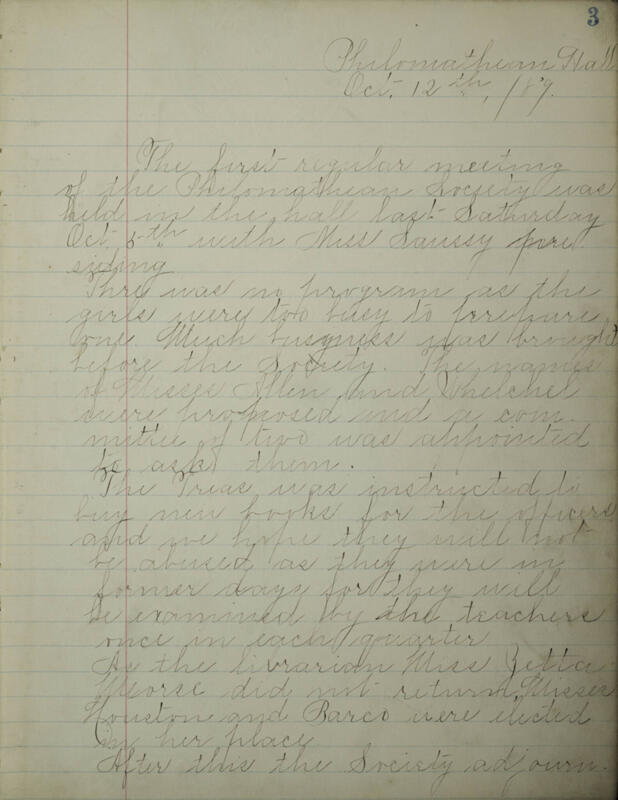 3
Philomathean Hall
Oct. 12th, /89.
The first regular meeting
of the Philomathean Society was
held in the hall last Saturday
Oct 5th with Miss Saussy pre
siding
Thre was no program as the
girls were too busy to prepare
one Much business was brought
before the Society. The names
of Misses Allen and Whelchel
were proposed and a com
mittee of two was appointed
to ask them.
The Treas was instructed to
buy new books for the officers
and we hope they will not
be abused as they were in
former days for they will
be examined by the teachers
once in each quarter
As the librarian Miss Zetta
Morse did not return, Misses
Houston and Barco were elected
in her place
After this the Society adjourn.